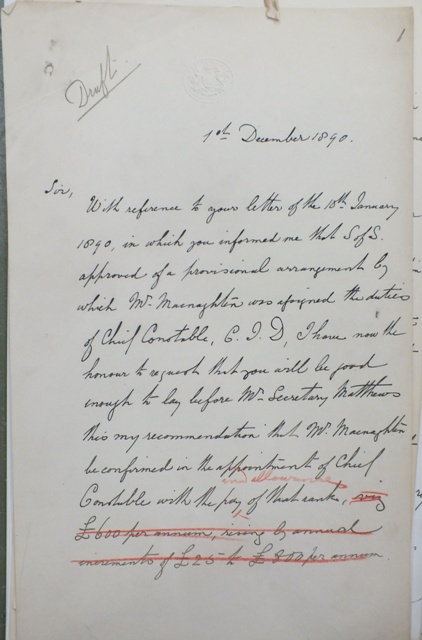 1
Draft.
1st December 1890.
Sir,
With reference to your letter of the 18th January
1890, in which you informed me that S of S.
approved of a provisional arrangement by
which Mr Macnaghten was assigned the duties
of Chief Constable, C. I. D, I have now the
honour to request that you will be good
enough to lay before Mr Secretary Matthews
this my recommendation that Mr Macnaghten
be confirmed in the appointment of Chief
and allowances
Constable with the pay of that rank, viz
£600 per annum, rising by annual
increments of £25 to £800 per annum.